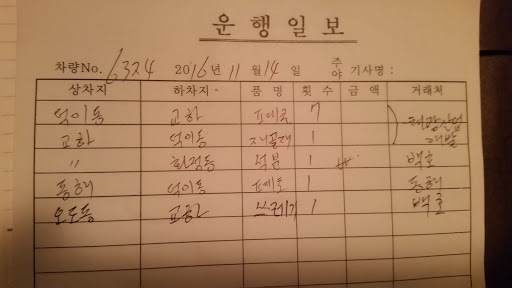 운 행 일 보
차량No. 6324 2016년 11월 14일 주 야 기사명 :
상차지 하차지 품 명 횟 수 금 액 거래처
덕이동 교하 7 태광산업
교하 덕이동 재골재 1 개발
〃 화정동 석분 1 백호
동해 덕이동 1 동해
오도동 교하 쓰레기 1 백호